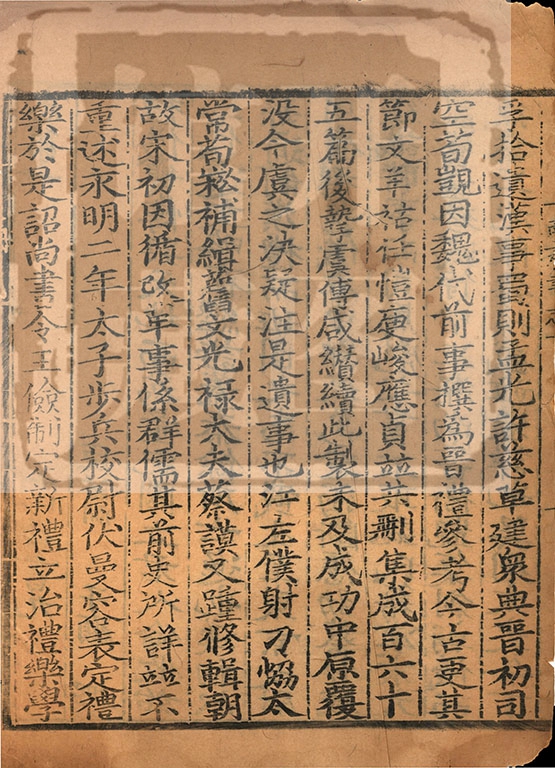 孚拾遺漢事蜀則孟光許慈草建衆典晉初司
空荀覬因魏代前事撰爲晉禮參考今古更其
節文羊祜任愷庾峻應貞竝共刪集成百六十
五篇後摯虞傅咸纘續此製未及成功中原覆
没今虞之決疑注是遺事也江左僕射刁恊太
常荀崧補緝舊文光禄大夫蔡謨又踵修輯朝
故宋初因循改革事係群儒其前史所詳竝不
重述永明二年太子步兵校尉伏曼容表定禮
樂於是詔尚書令王儉制定新禮立治禮樂學